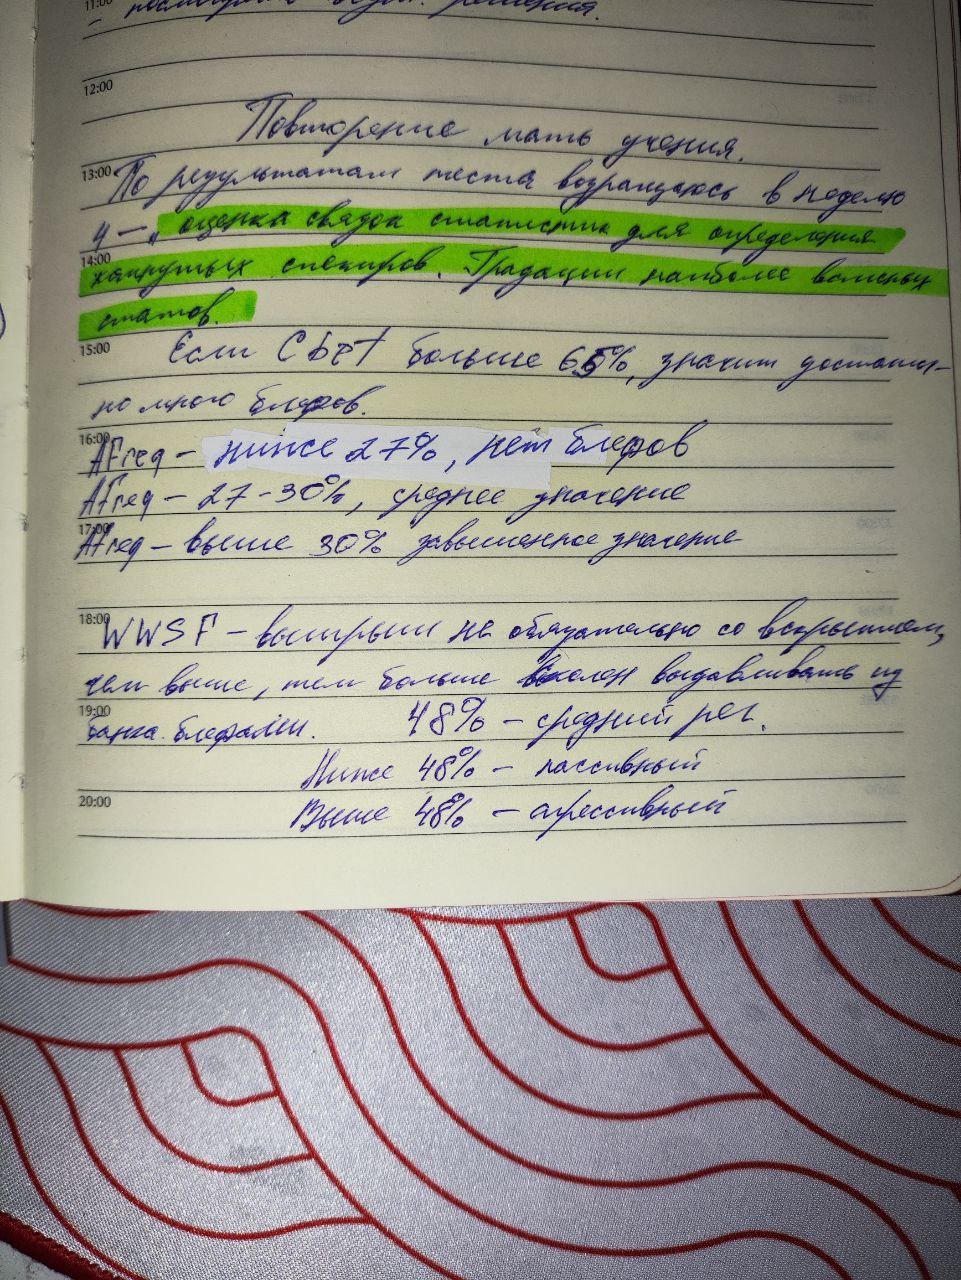 11:00
решения.
12:00
Повторение мать учения.
13:00
По результатам теста возращаюсь в неделю
4 – „ оценка связок статистик для определения
14:00
закрутых спекиров. Градации наиболее важных
статов.
15:00
Если Cbet больше 65%, значит достаточ-
но много блефов.
16:00
AFreq – ниже 27%, нет блефов
AFreq – 27-30%, среднее значение
17:00
AFreq – выше 30% завышенное значение
18:00
WWSF – выигрыш не обязательно со вскрытием,
чем выше, тем больше склонен выдавливать из
19:00
банка блефами. 48% – средний рег.
Ниже 48% – пассивный
20:00
Выше 48% – агрессивный